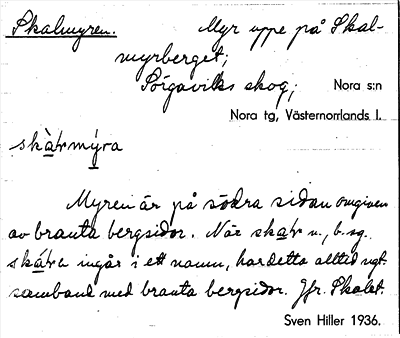 Skalmyren. Myr uppe på Skal-
myrberget;
Sörgaviks skog; Nora s:n
Nora tg, Västernorrlands l.
Myren är på södra sidan omgiven
av branta bergsidor. När skaɫr n., b. sg.
ingår i ett namn, har detta alltid ngt
samband med branta bergsidor. Jfr. Skalet.
Sven Hiller 1936.